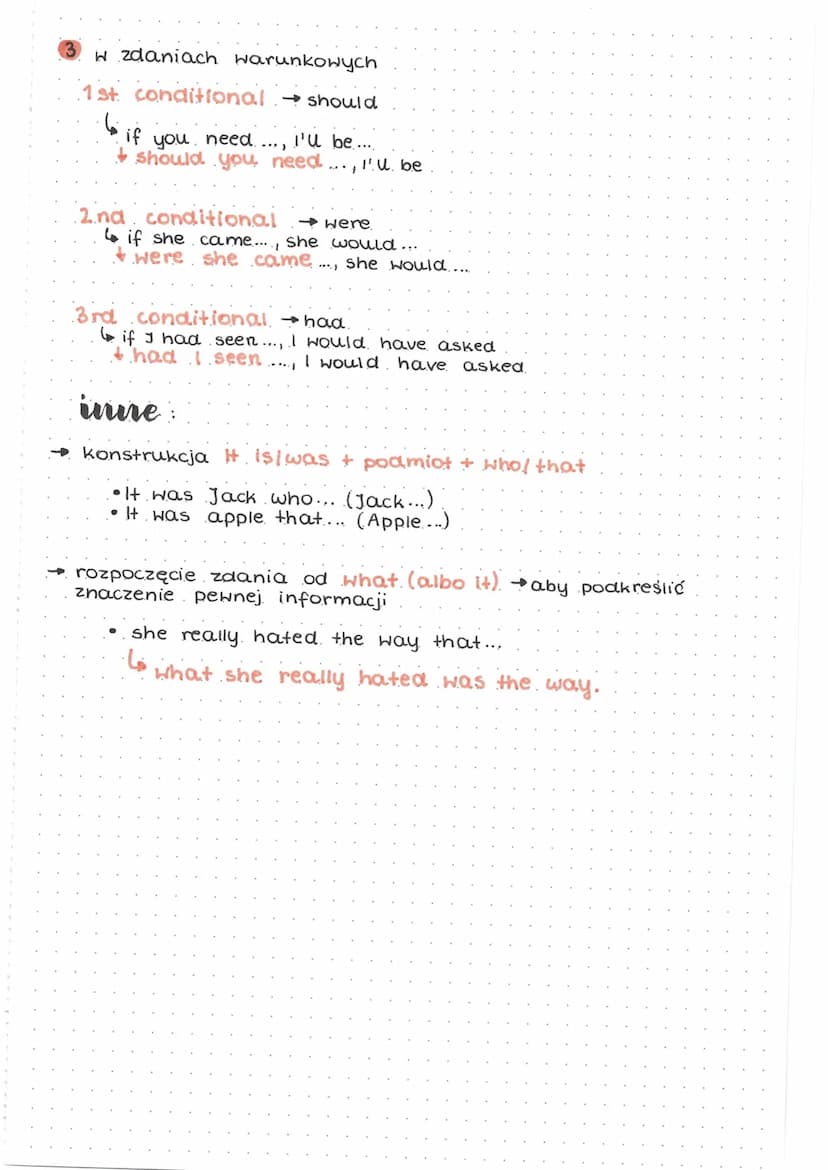 3 w zdaniach warunkowych
1st conditional → should
↳ if you need ..., I'll be ...
↓ should you need ..., I'll be
2nd conditional → were
↳ if she came..., she would ...
↓ were she came ..., she would ...
3rd conditional → had
↳ if I had seen ..., I would have asked
↓ had I seen ..., I would have asked
inne :
→ konstrukcja It is/was + podmiot + who/that
• It was Jack who... (Jack...)
• It was apple that... (Apple...)
→ rozpoczęcie zdania od what (albo it) → aby podkreślić
znaczenie pewnej informacji
• she really hated the way that...
↳ what she really hated was the way.